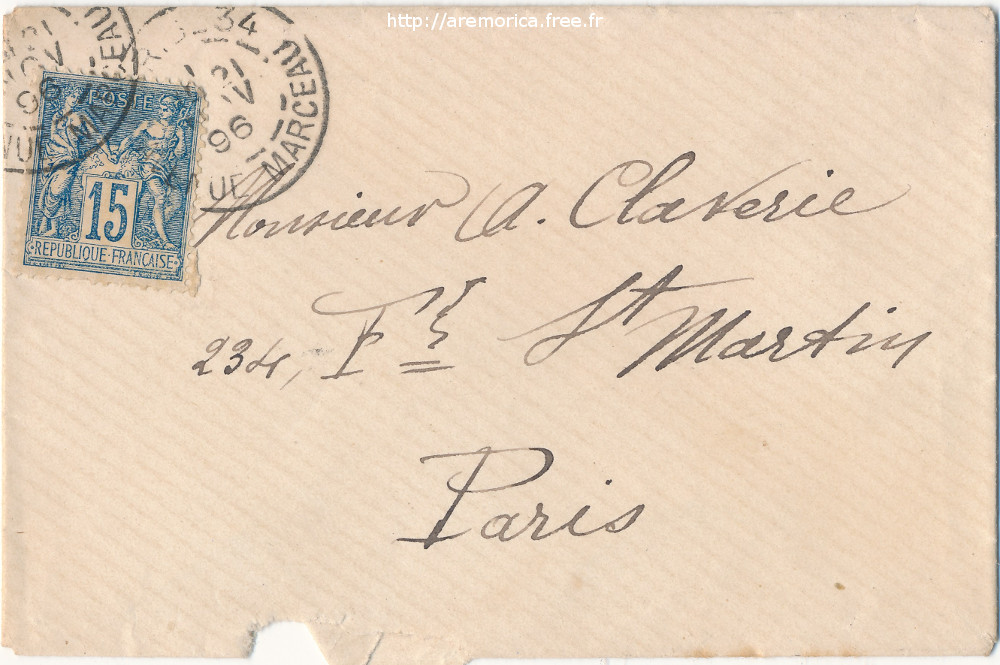 http://aremorica.free.fr
34
21
96
MARCEAU
21
96
MARCEAU
POSTE
15
REPUBLIQUE FRANCAISE
Monsieur A. Claverie
234, Fg St Martin
Paris